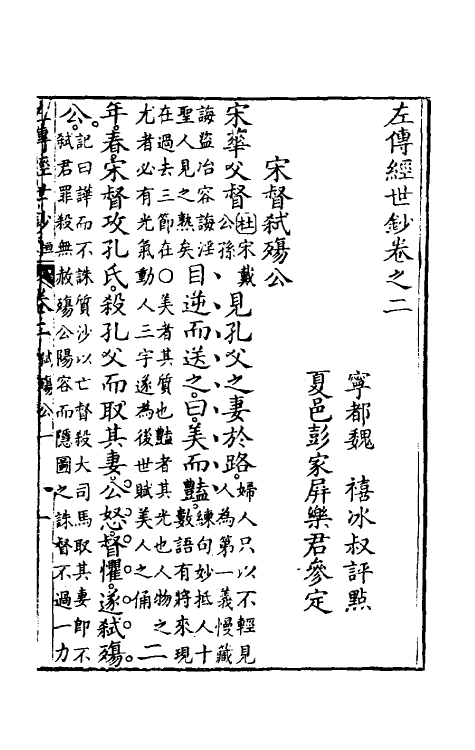 左傳經世鈔卷之二
寧都魏　禧冰叔評點
夏邑彭家屏樂君參定
宋督弑殤公
宋華父督杜宋戴公孫見孔父之妻於路。婦人只以不輕見人為第一義慢藏
誨盜冶容誨淫聖人見之熟矣目逆而送之。曰。美而豔。練句妙抵人十數語有將來現
在過去三節在○美者其質也豔者其光也人物之尤者必有光氣動人三字遂為後世賦美人之俑二
年。春。宋督攻孔氏。殺孔父而取其妻。公怒。督懼。遂弑殤。
公。記曰譁而不誅質沙以亡督殺大司馬取其妻即不弑君罪殺無赦殤公陽容而隱圖之誅督不過一力
左傳經世鈔 桓 卷二 弑殤公 一